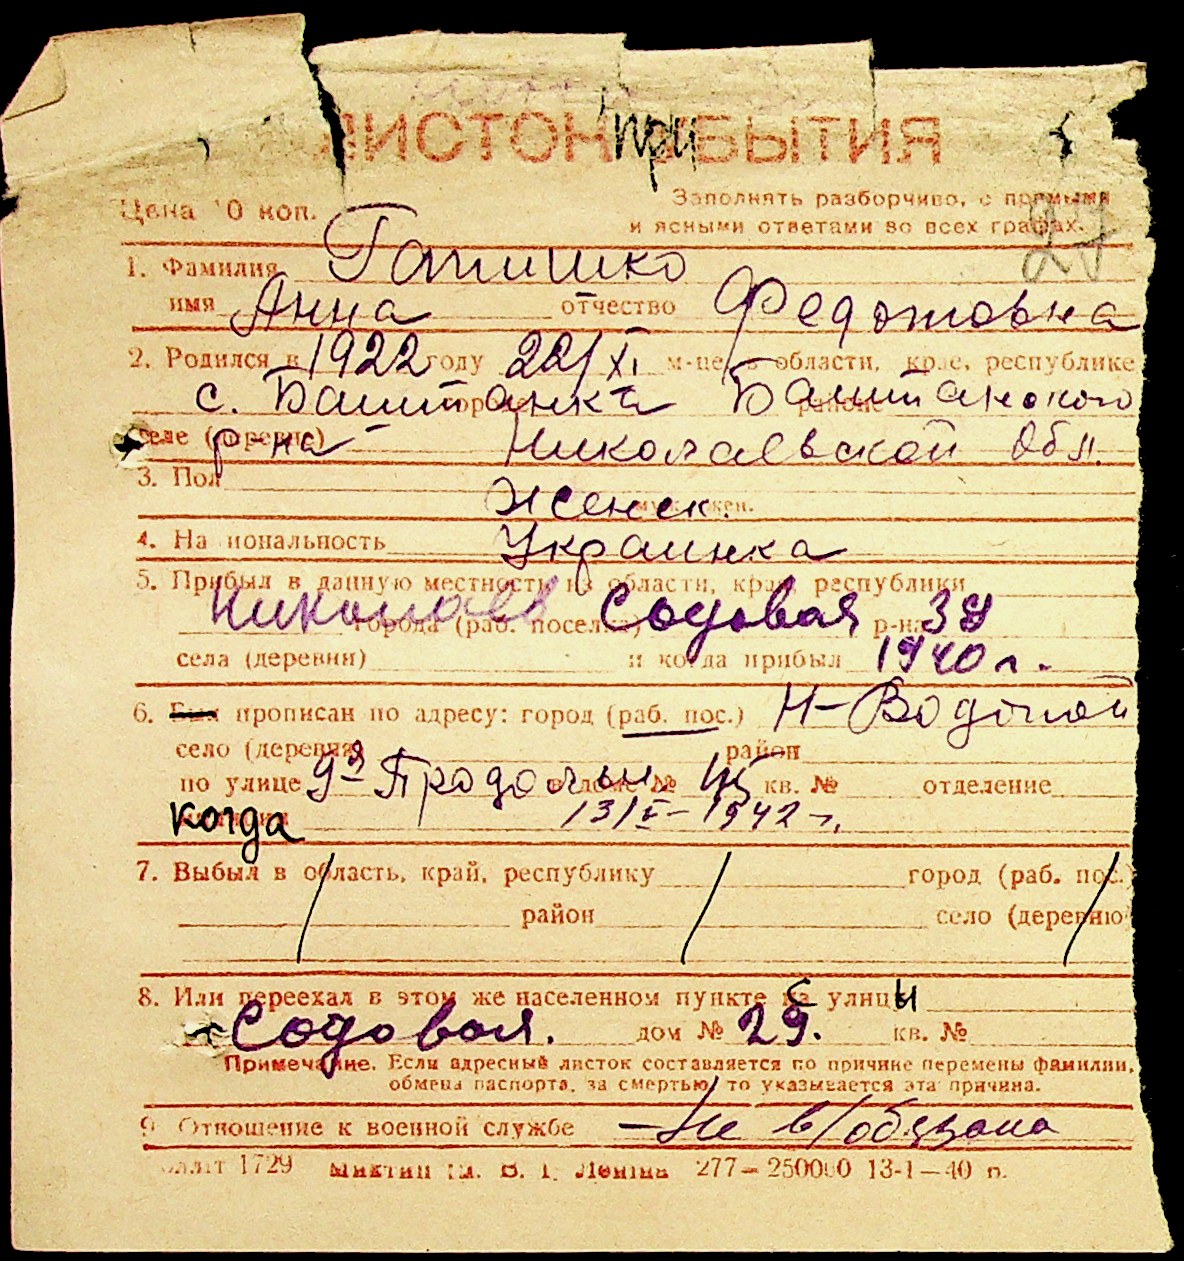 ЛИСТОК при БЫТИЯ
Цена 10 коп.
Заполнять разборчиво, с прямыми
и ясными ответами во всех графах.
27
1. Фамилия Гатишко
имя Анна отчество Федотовна
2. Родился в 1922 году 22/XI м-це, в области, крае, республике
с. Баштанка Баштанского
селе (деревне) р-на Николаевской Обл.
3. Пол Женск.
4. Национальность Украинка
5. Прибыл в данную местность из области, края, республики
Николаев города (раб. поселка) Содовая р-на 38
села (деревни) и когда прибыл 1940 г.
6. Был прописан по адресу: город (раб. пос.) Н-Водопой
село (деревня) район
по улице 9я Продольн в доме № 45 кв. № отделение
когда 13/I-1942 г.
7. Выбыл в область, край, республику город (раб. пос.)
район село (деревню)
8. Или переехал в этом же населенном пункте с улицы
Содовая. дом № 29. кв. №
Примечание. Если адресный листок составляется по причине перемены фамилии,
обмена паспорта, за смертью, то указывается эта причина.
9. Отношение к военной службе – Не в/обязана
1729 277–250000 13-1–40 р.